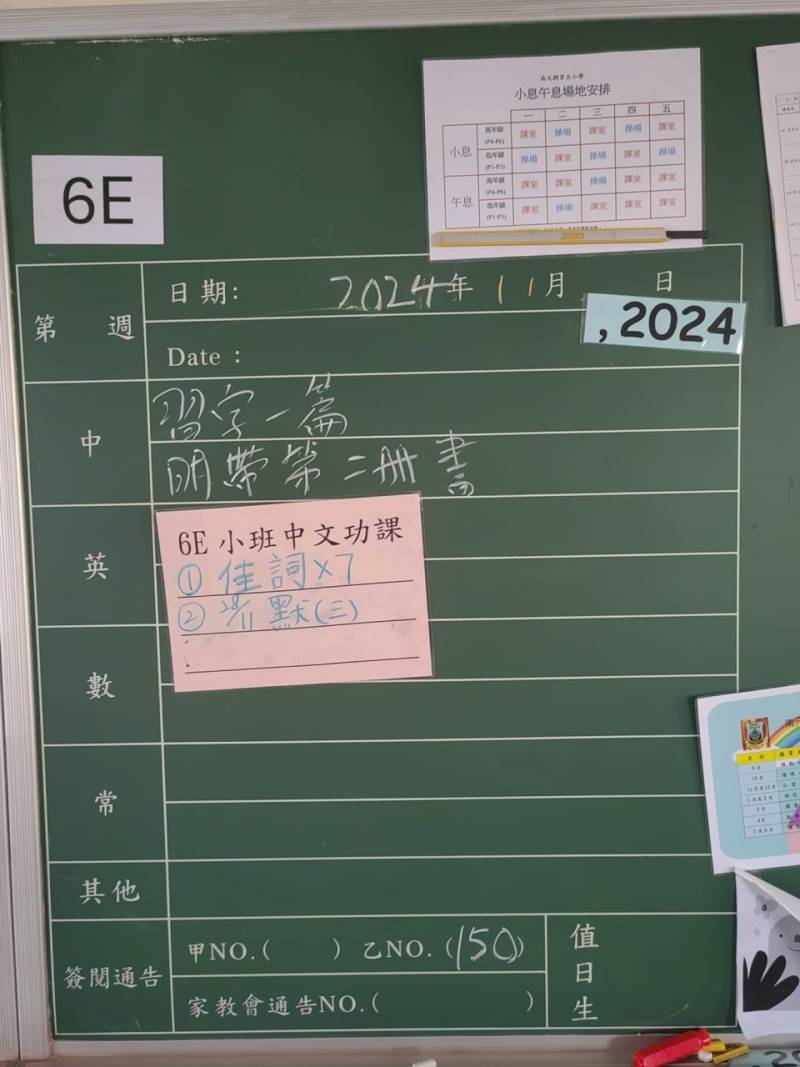 南元朗官立小學
小息午息場地安排
一 二 三 四 五
小息 高年級 (P4-P6) 課室 操場 課室 操場 課室
低年級 (P1-P3) 操場 課室 操場 課室 操場
午息 高年級 (P4-P6) 課室 課室 操場 課室 課室
低年級 (P1-P3) 課室 操場 課室 課室 課室
6E
第 週
日期: 2024年 11月 日
Date : , 2024
中
習字一篇
明帶第二冊書
英
6E 小班中文功課
① 佳詞×7
② 28/11 默(三)
數
常
其他
簽閱通告
甲NO.( ) 乙NO.(150)
家教會通告NO.( )
值日生
月份
9月
10月
11月及12月
1月及2月
3月
4月